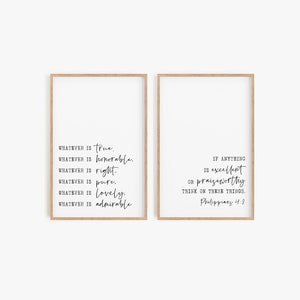 WHATEVER IS true,
WHATEVER IS honorable,
WHATEVER IS right,
WHATEVER IS pure,
WHATEVER IS lovely,
WHATEVER IS admirable
IF ANYTHING
IS excellent
OR praiseworthy
THINK ON THESE THINGS.
Philippians 4:8